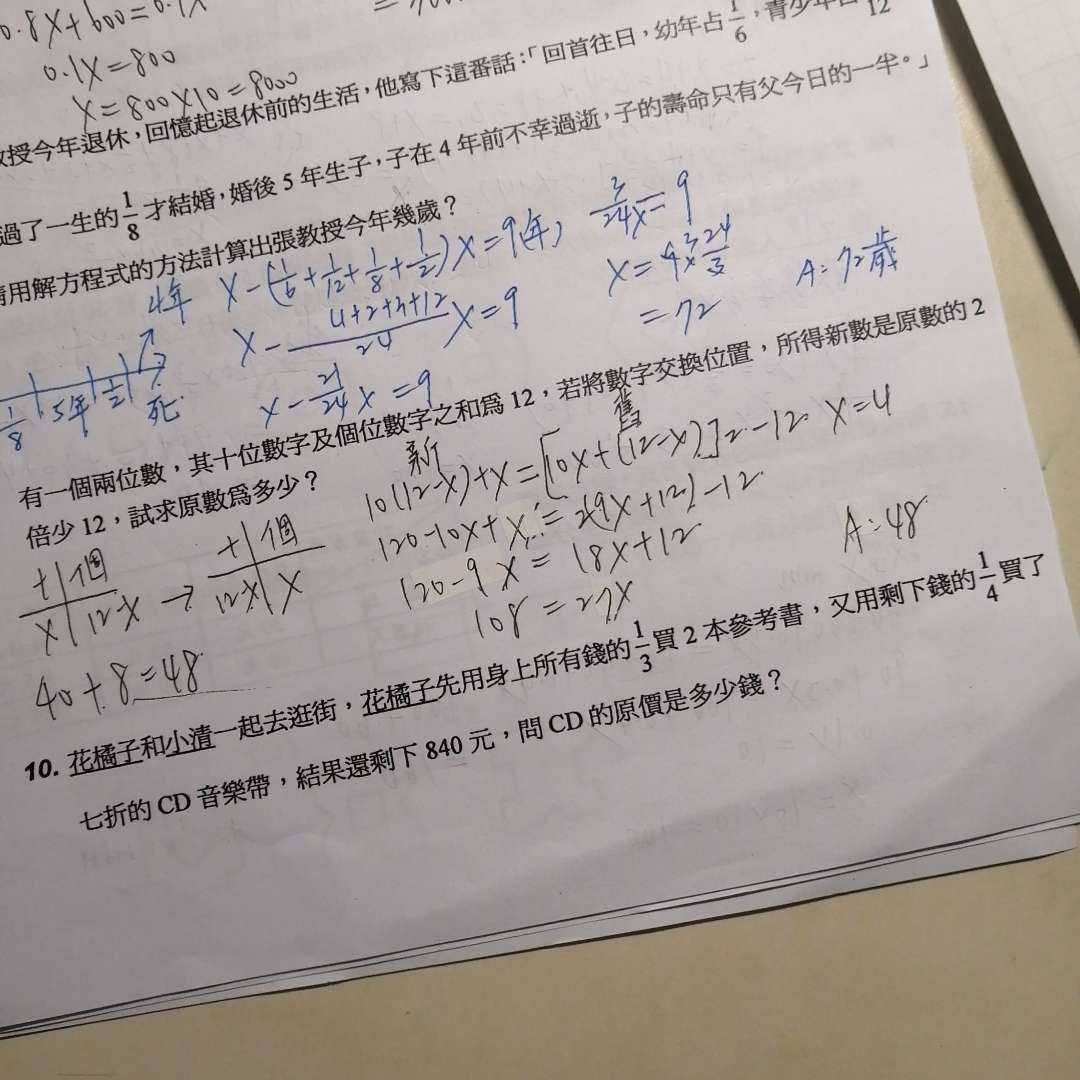 0.8X+600=0.1X
0.1X=800
X=800X10=8000
教授今年退休，回憶起退休前的生活，他寫下這番話：「回首往日，幼年占1/6，青少年占1/12
過了一生的1/8才結婚，婚後5年生子，子在4年前不幸過逝，子的壽命只有父今日的一半。」
請用解方程式的方法計算出張教授今年幾歲？
4年
X-(1/6+1/12+1/8+1/2)X=9(年)
X-(4+2+3+12)/24 X=9
X-21/24 X=9
1/8 5年 1/2 死
3/24 X=9
X=9X24/3
=72
A:72歲
有一個兩位數，其十位數字及個位數字之和爲12，若將數字交換位置，所得新數是原數的2
倍少12，試求原數爲多少？
新 舊
10(12-X)+X=[10X+(12-X)]2-12 X=4
120-10X+X=2(9X+12)-12
120-9X=18X+12
108=27X
十|個 → 十|個
X|12-X 12-X|X
40+8=48
A:48
10. 花橘子和小渣一起去逛街，花橘子先用身上所有錢的1/3買2本參考書，又用剩下錢的1/4買了
七折的CD音樂帶，結果還剩下840元，問CD的原價是多少錢？